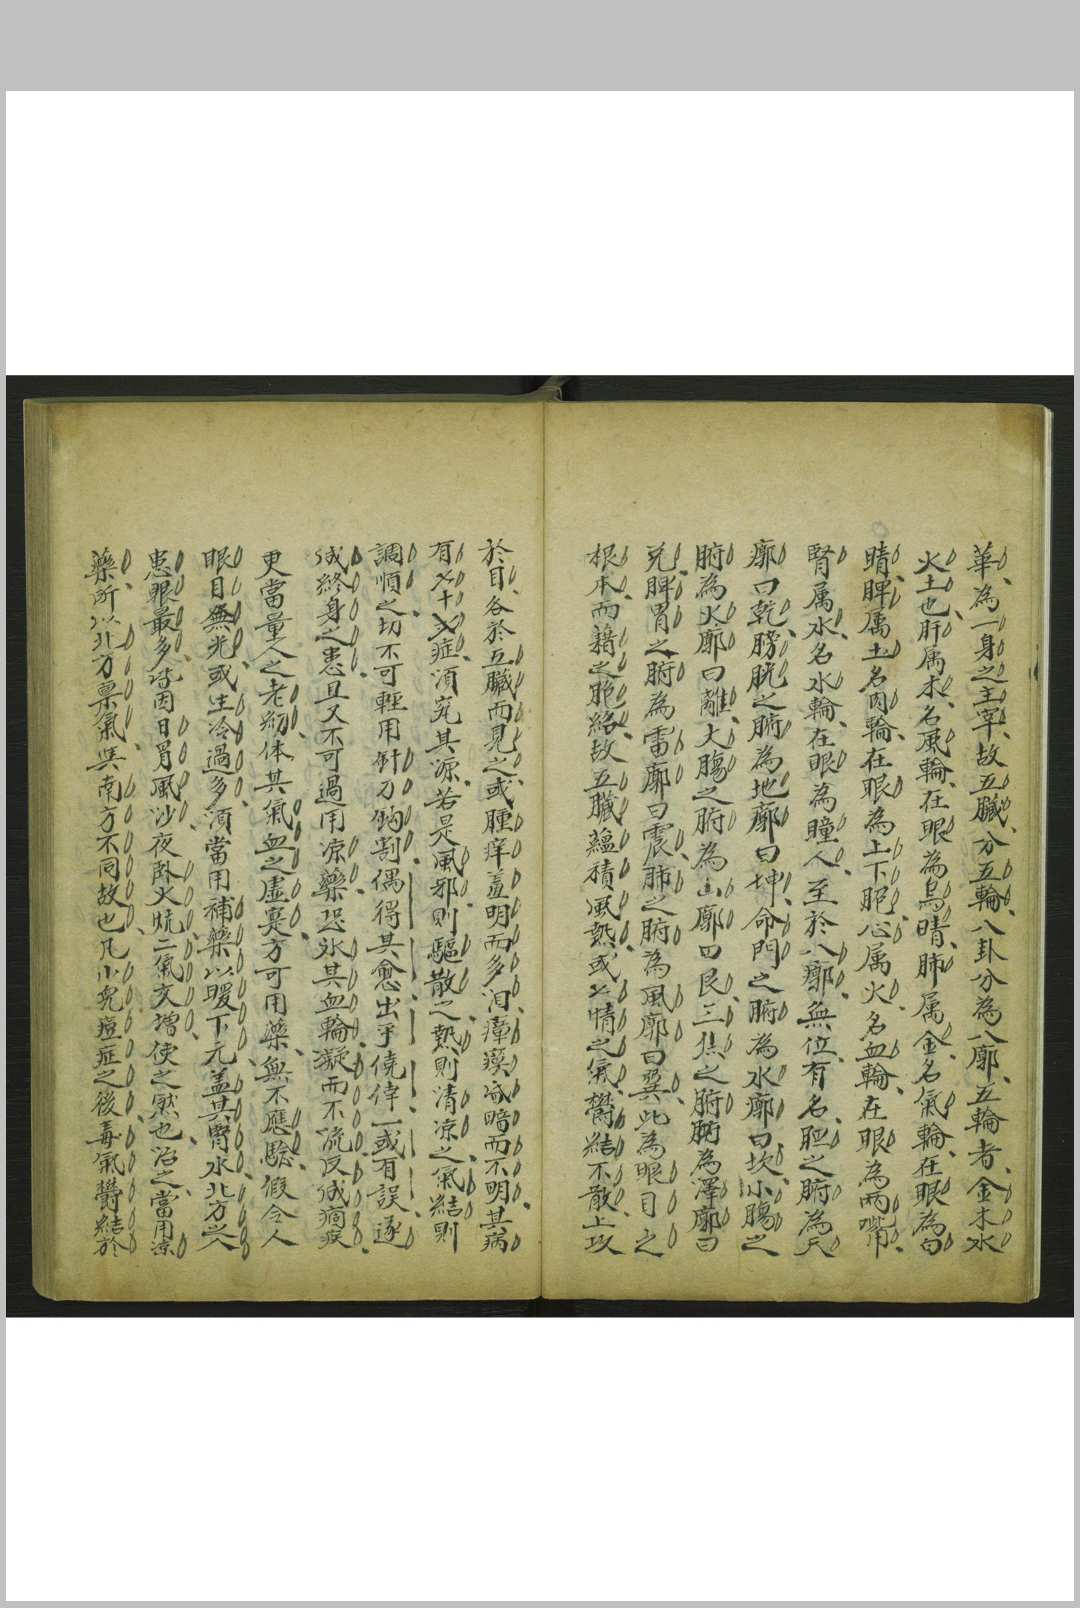 華為一身之主宰故五臟分五輪八卦分為八廓五輪者金木水
火土也肝属木名風輪在眼為烏睛肺属金名氣輪在眼為白
睛脾属土名肉輪在眼為上下胞心属火名血輪在眼為兩嘴
腎属水名水輪在眼為瞳人至於八廓無位有名胆之腑為天
廓曰乾膀胱之腑為地廓曰坤命門之腑為水廓曰坎小腸之
腑為火廓曰離大腸之腑為山廓曰艮三焦之腑為澤廓曰
兌脾胃之腑為雷廓曰震肺之腑為風廓曰巽此為眼目之
根本而藉之胞絡故五臟蘊積風熱或七情之氣欝結不散上攻
於目各於五臟而見之或腫痒羞明而多淚瘴瘼昏暗而不明其病
有七十二症須究其源若是風邪則驅散之熱則清凉之氣結則
調順之切不可輕用針刀鈎割偶得其愈出乎僥倖一或有誤遂
成終身之患且又不可過用凉藥恐氷其血輪凝而不流反成痼疾
更當量人之老㓜体其氣血之虚寔方可用藥無不應騐假令人
眼目無光或生冷過多須當用補藥以暖下元盖其腎水北方之人
患眼最多皆因日冐風沙夜卧火炕二氣交增使之然也治之當用凉
藥所以北方禀氣與南方不同故也凡小兒痘症之後毒氣欝結於